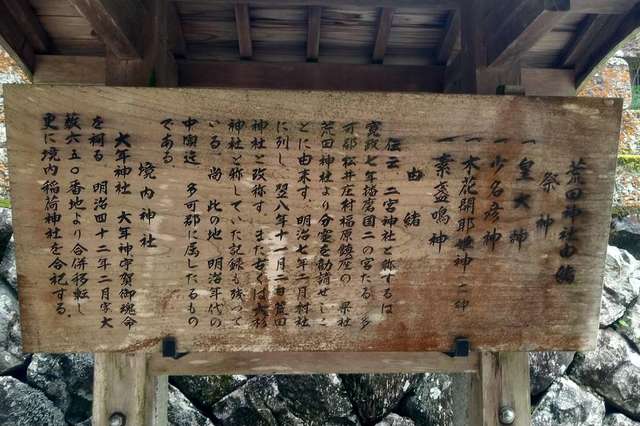 荒田神社由緒
祭神
一 皇大神
一 少名彦神
一 木花開耶姫神 二神
一 素盞鳴神
由緒
伝云、二宮神社と称するは
寛政七年播磨国二の宮たる 多
可郡松井庄村福原鎮座の 県社
荒田神社より分霊を勧請せしこ
とに由来す。明治七年二月村社
に列し、翌八年十一月二日荒田
神社と改称す。また古くは大杉
神社と称していた記録も残って
いる。尚 此の地 明治年代の
中頃迄 多可郡に属したるもの
である
境内神社
大年神社 大年神宇賀御魂命
を祠る 明治四十二年二月字大
薮六五〇番地より合併移転し
更に境内稲荷神社を合祀する。